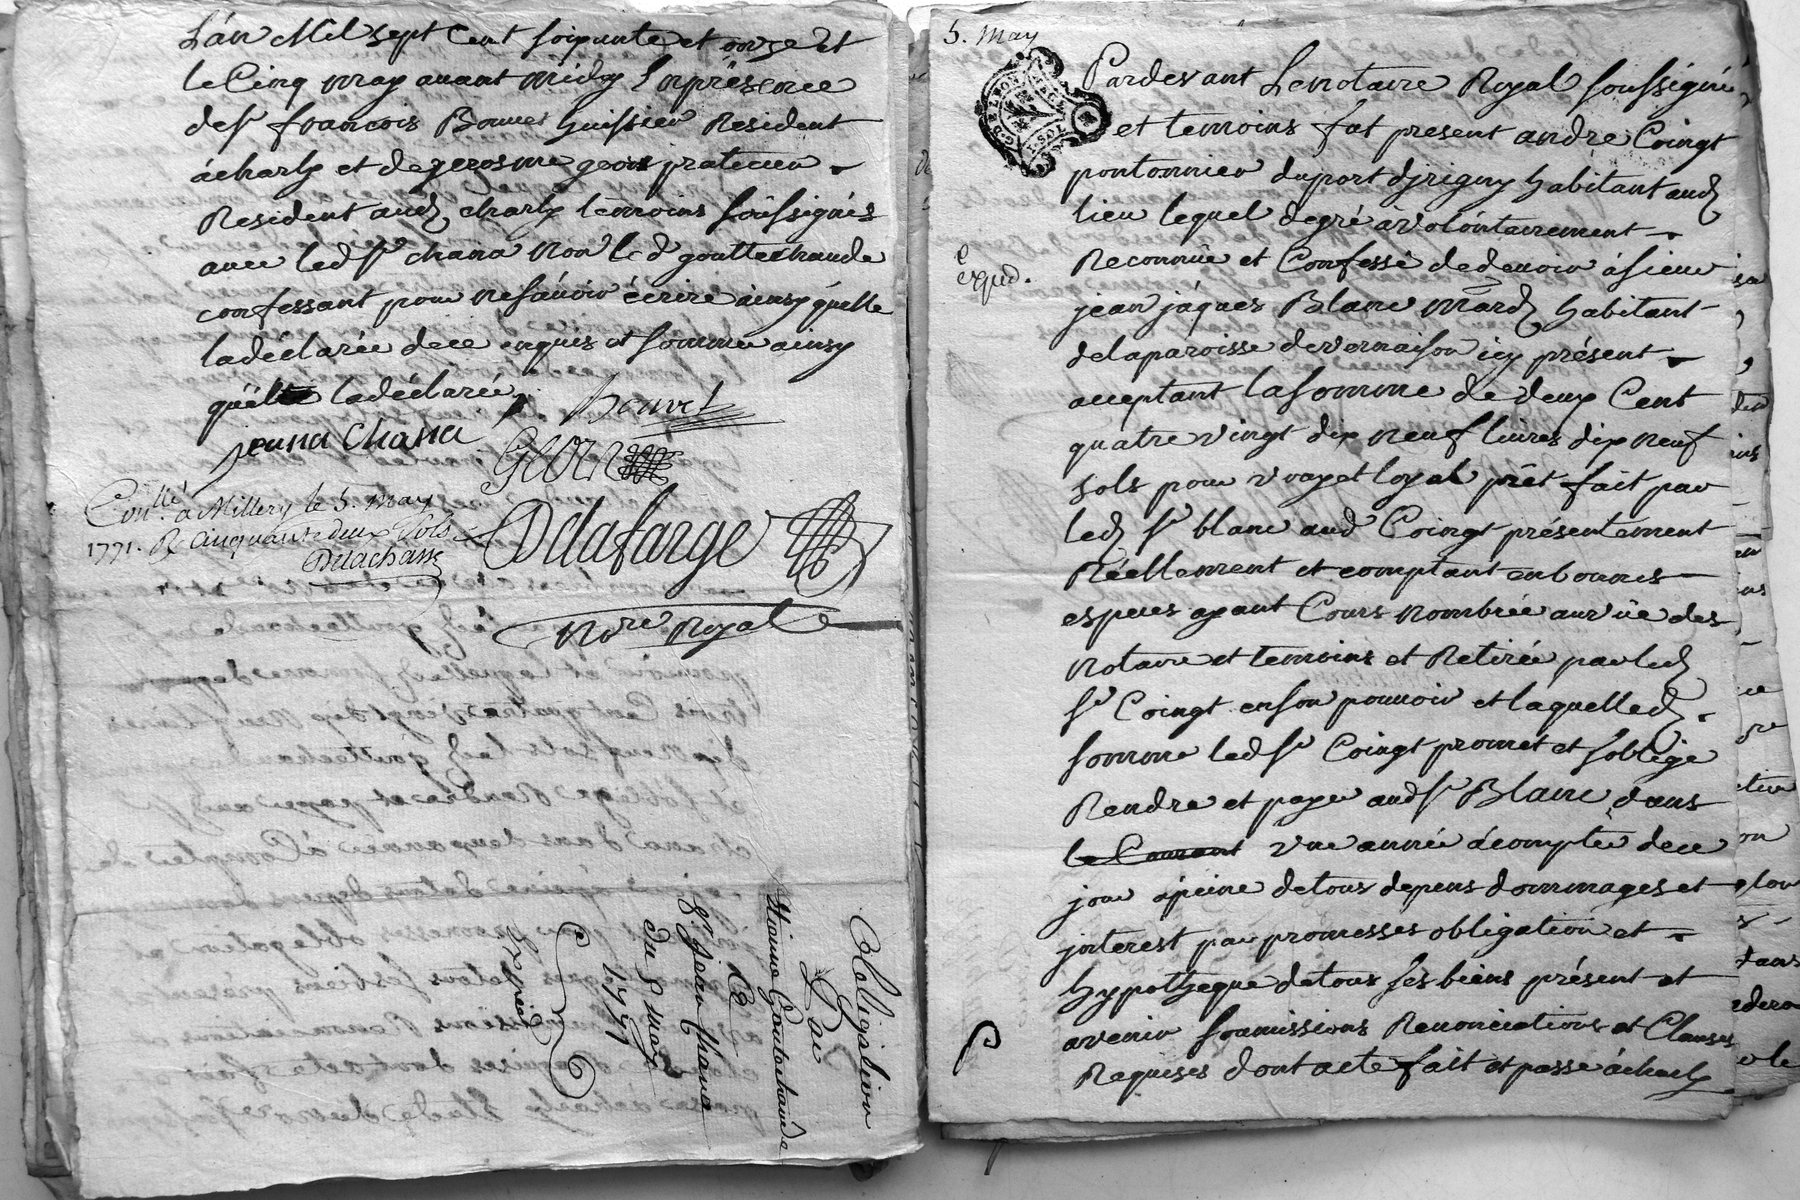 L'an Mil sept Cent soixante et onze et
le Cinq may avant midy En présence
de sr francois Bonnet huissier Resident
à charly et de gerosme geoin praticien
Resident aud. charly temoins soussignés
avec led sr chana non lad goutterhaude
confessant pour ne savoir écrire ainsy quelle
la déclarée de ce enquis et sommée ainsy
quelle la déclarée
Bonnet
jeana chana
Geoin
Conllé à Millery le 5. may
1771. R Cinquante deux sols
Delachasse
Delafarge
Nore Royal
Obligation
Par
Etienne Goutachaude
à
Sr. Jean Chana
du 5 may
1771
Expéd
5. May
Pardevant Le notaire Royal soussigné
et temoins fut present andre Coingt
pontonnier du port d'jrigny habitant aud
lieu lequel de gré a volontairement
Reconnüe et Confessé de devoir à sieur
Expéd.
jean jâques Blanc Mard habitant
de la paroisse de vernaison icy présent
acceptant la somme de deux Cent
quatre vingt dix neuf livres dix neuf
sols pour vray et loyal prêt fait par
led sr blanc aud Coingt présentement
Réellement et comptant en bonnes
especes ayant Cours nombrée au vüe des
notaire et temoins et Retirée par led
sr Coingt en son pouvoir et laquelle d.
somme led sr Coingt promet et s'oblige
Rendre et payer aud sr Blanc dans
le Courant une année à compter de ce
jour à peine de tous depens dommages et
jnterest par promesses obligation et
hypotheque de tous ses biens présent et
avenir soumissions Renonciations et Clauses
Requises dont acte fait et passé à charly